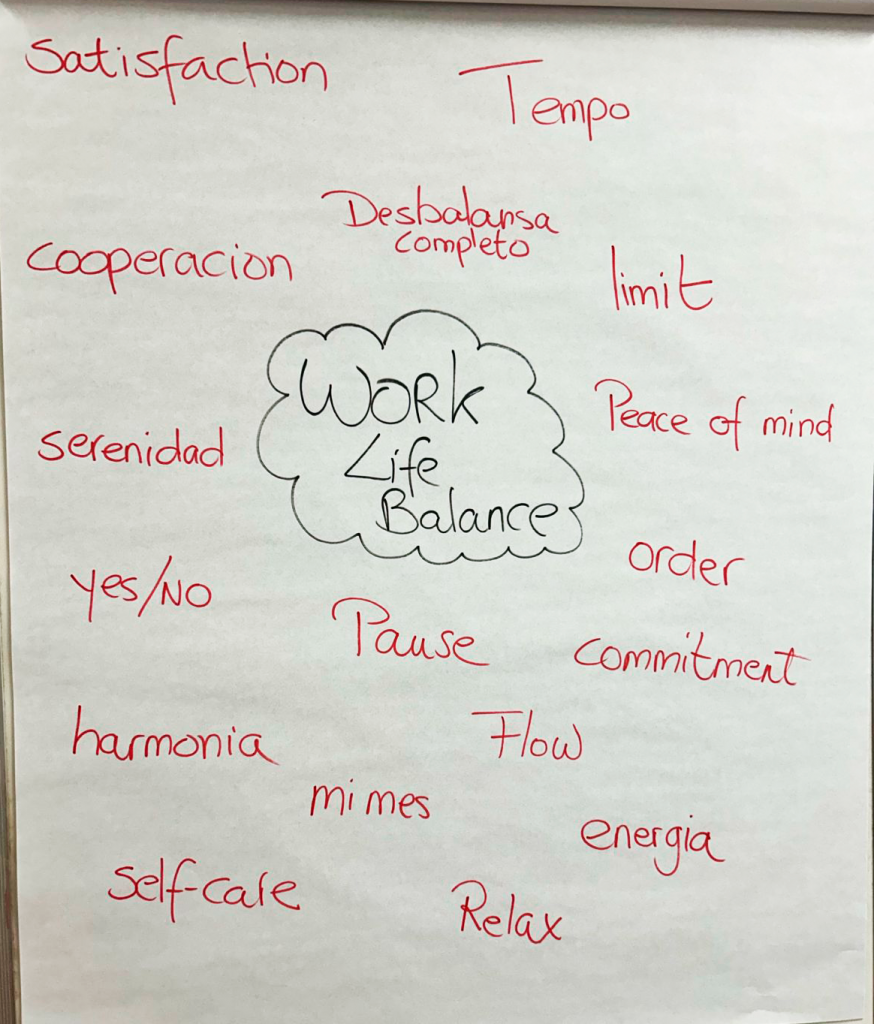 Satisfaction
Tempo
Desbalansa
completo
cooperacion
limit
Work
Life
Balance
Peace of mind
serenidad
order
yes/No
Pause
commitment
harmonia
Flow
mi mes
energia
self-care
Relax